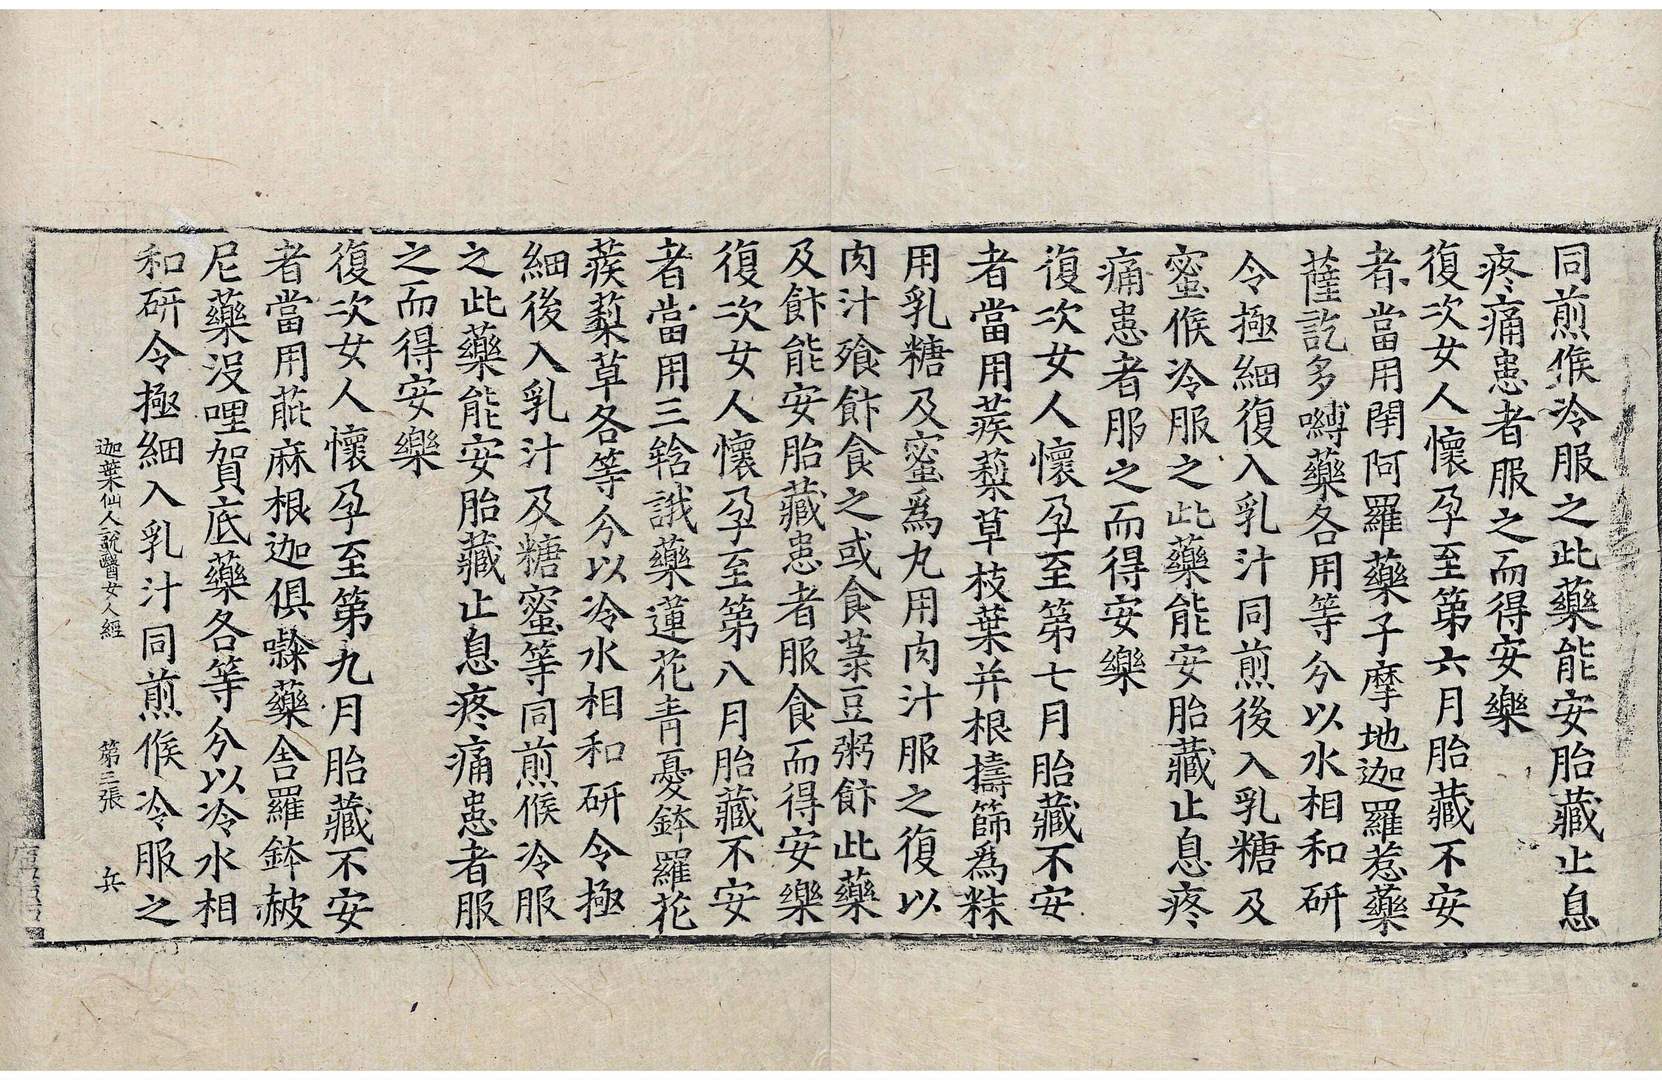 同煎候冷服之此藥能安胎藏止息
疼痛患者服之而得安樂
復次女人懷孕至第六月胎藏不安
者當用閈阿羅藥子摩地迦羅惹藥
薩訖多嚩藥各用等分以水相和研
令極細復入乳汁同煎後入乳糖及
蜜候冷服之此藥能安胎藏止息疼
痛患者服之而得安樂
復次女人懷孕至第七月胎藏不安
者當用蒺䔧草枝葉并根擣篩為粖
用乳糖及蜜為丸用肉汁服之復以
肉汁飱飰食之或食菉豆粥飰此藥
及飰能安胎藏患者服食而得安樂
復次女人懷孕至第八月胎藏不安
者當用三𩎖誐藥蓮花青憂鉢羅花
蒺䔧草各等分以冷水相和研令極
細後入乳汁及糖蜜等同煎候冷服
之此藥能安胎藏止息疼痛患者服
之而得安樂
復次女人懷孕至第九月胎藏不安
者當用茈麻根迦俱㘑藥舍羅鉢披
尼藥沒哩賀底藥各等分以冷水相
和研令極細入乳汁同煎候冷服之
迦葉仙人說醫女人經 第三張 兵